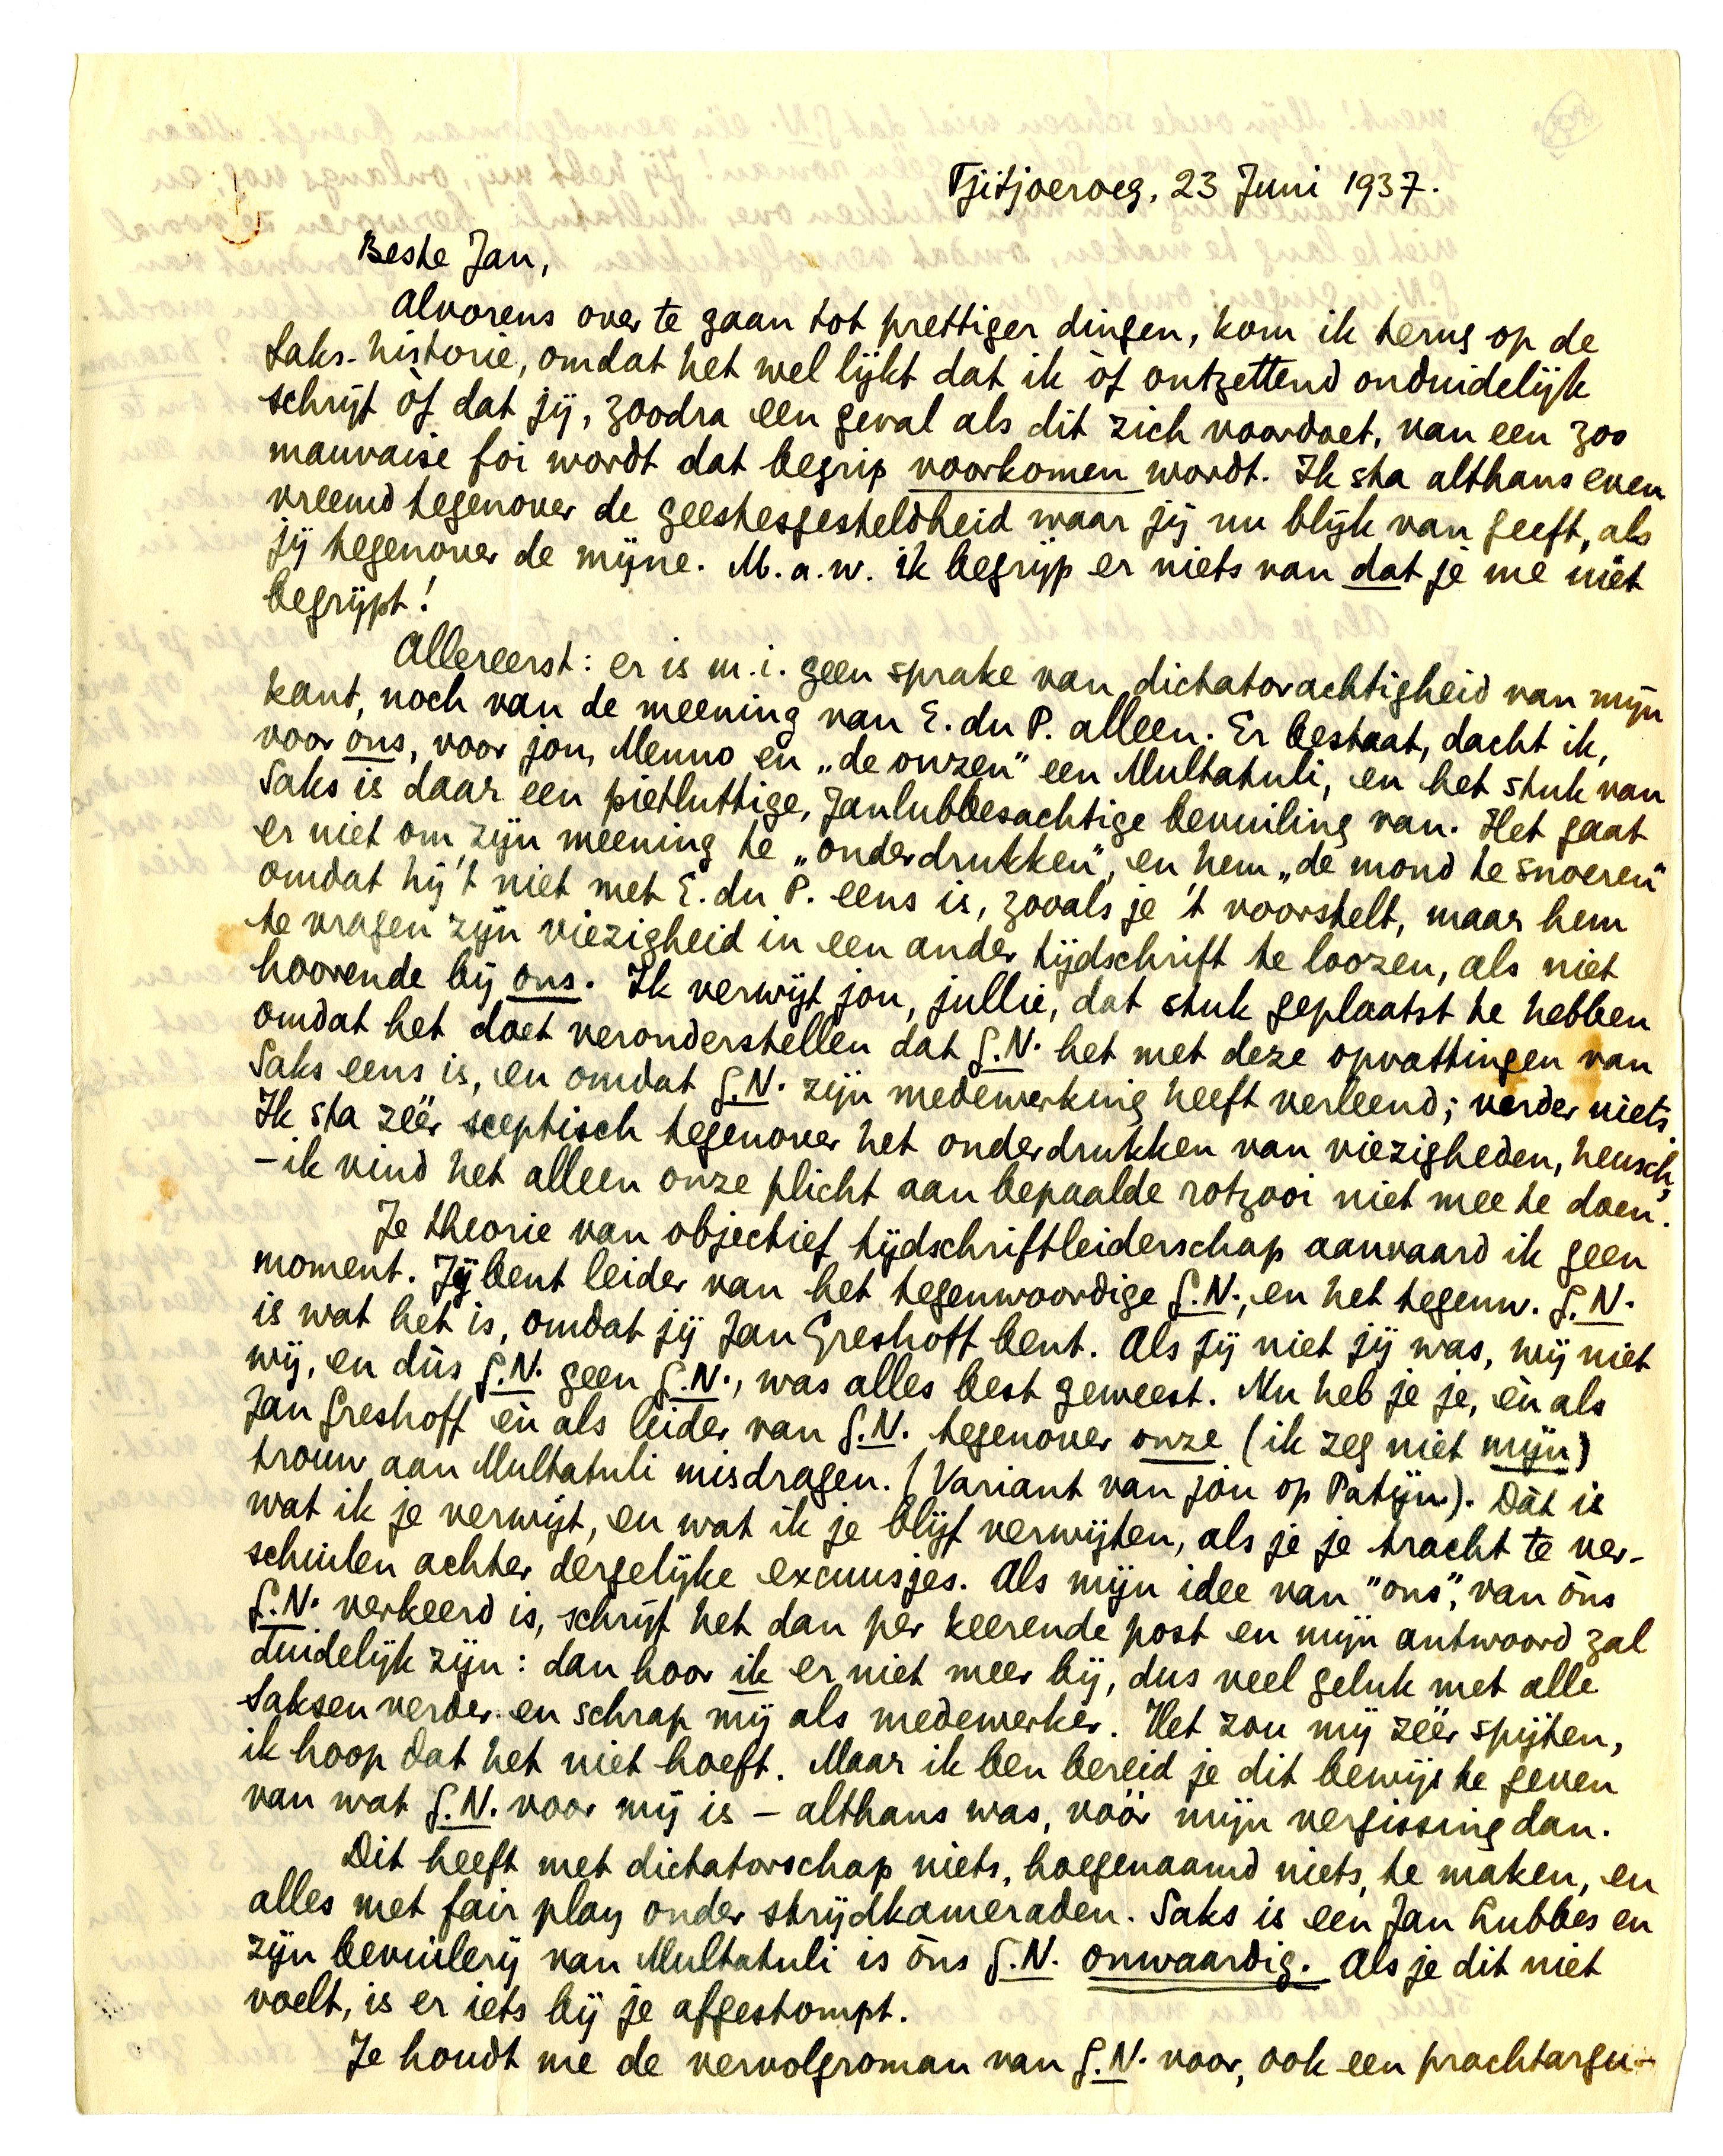 Tjitjoeroeg, 23 Juni 1937.
Beste Jan,
Alvorens over te gaan tot prettiger dingen, kom ik terug op de
Saks-historie, omdat het wel lijkt dat ik òf ontzettend onduidelijk
schrijf òf dat jij, zoodra een geval als dit zich voordoet, van een zoo
mauvaise foi wordt dat begrip voorkomen wordt. Ik sta althans even
vreemd tegenover de geestesgesteldheid waar jij nu blijk van geeft, als
jij tegenover de mijne. M.a.w. ik begrijp er niets van dat je me niet
begrijpt!
Allereerst: er is m.i. geen sprake van dictatorachtigheid van mijn
kant, noch van de meening van E. du P. alleen. Er bestaat, dacht ik,
voor ons, voor jou, Menno en „de onzen" een Multatuli, en het stuk van
Saks is daar een pietluttige, Janlubbesachtige bevuiling van. Het gaat
er niet om zijn meening te „onderdrukken", en hem „de mond te snoeren"
omdat hij 't niet met E. du P. eens is, zooals je 't voorstelt, maar hem
te vragen zijn viezigheid in een ander tijdschrift te loozen, als niet
hoorende bij ons. Ik verwijt jou, jullie, dat stuk geplaatst te hebben
omdat het doet veronderstellen dat G.N. het met deze opvattingen van
Saks eens is, en omdat G.N. zijn medewerking heeft verleend; verder niets.
Ik sta zéér sceptisch tegenover het onderdrukken van viezigheden, heusch,
– ik vind het alleen onze plicht aan bepaalde rotzooi niet mee te doen.
Je theorie van objectief tijdschriftleiderschap aanvaard ik geen
moment. Jij bent leider van het tegenwoordige G.N., en het tegenw. G.N.
is wat het is, omdat jij Jan Greshoff bent. Als jij niet jij was, wij niet
wij, en dùs G.N. geen G.N., was alles best geweest. Nu heb je je, èn als
Jan Greshoff èn als leider van G.N. tegenover onze (ik zeg niet mijn)
trouw aan Multatuli misdragen. (Variant van jou op Patijn). Dàt is
wat ik je verwijt, en wat ik je blijf verwijten, als je je tracht te ver-
schuilen achter dergelijke excuusjes. Als mijn idee van "ons", van òns
G.N. verkeerd is, schrijf het dan per keerende post en mijn antwoord zal
duidelijk zijn: dan hoor ik er niet meer bij, dus veel geluk met alle
Saksen verder en schrap mij als medewerker. Het zou mij zéér spijten,
ik hoop dat het niet hoeft. Maar ik ben bereid je dit bewijs te geven
van wat G.N. voor mij is – althans was, vóór mijn vergissing dan.
Dit heeft met dictatorschap niets, hoegenaamd niets, te maken, en
alles met fair play onder strijdkameraden. Saks is een Jan Lubbes en
zijn bevuilerij van Multatuli is òns G.N. onwaardig. Als je dit niet
voelt, is er iets bij je afgestompt.
Je houdt me de vervolgroman van G.N. voor, ook een prachtargu-